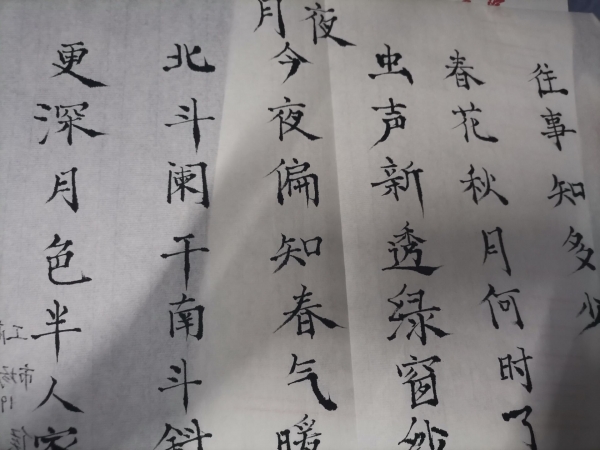 月夜
更深月色半人家
北斗阑干南斗斜
今夜偏知春气暖
虫声新透绿窗纱
春花秋月何时了
往事知多少